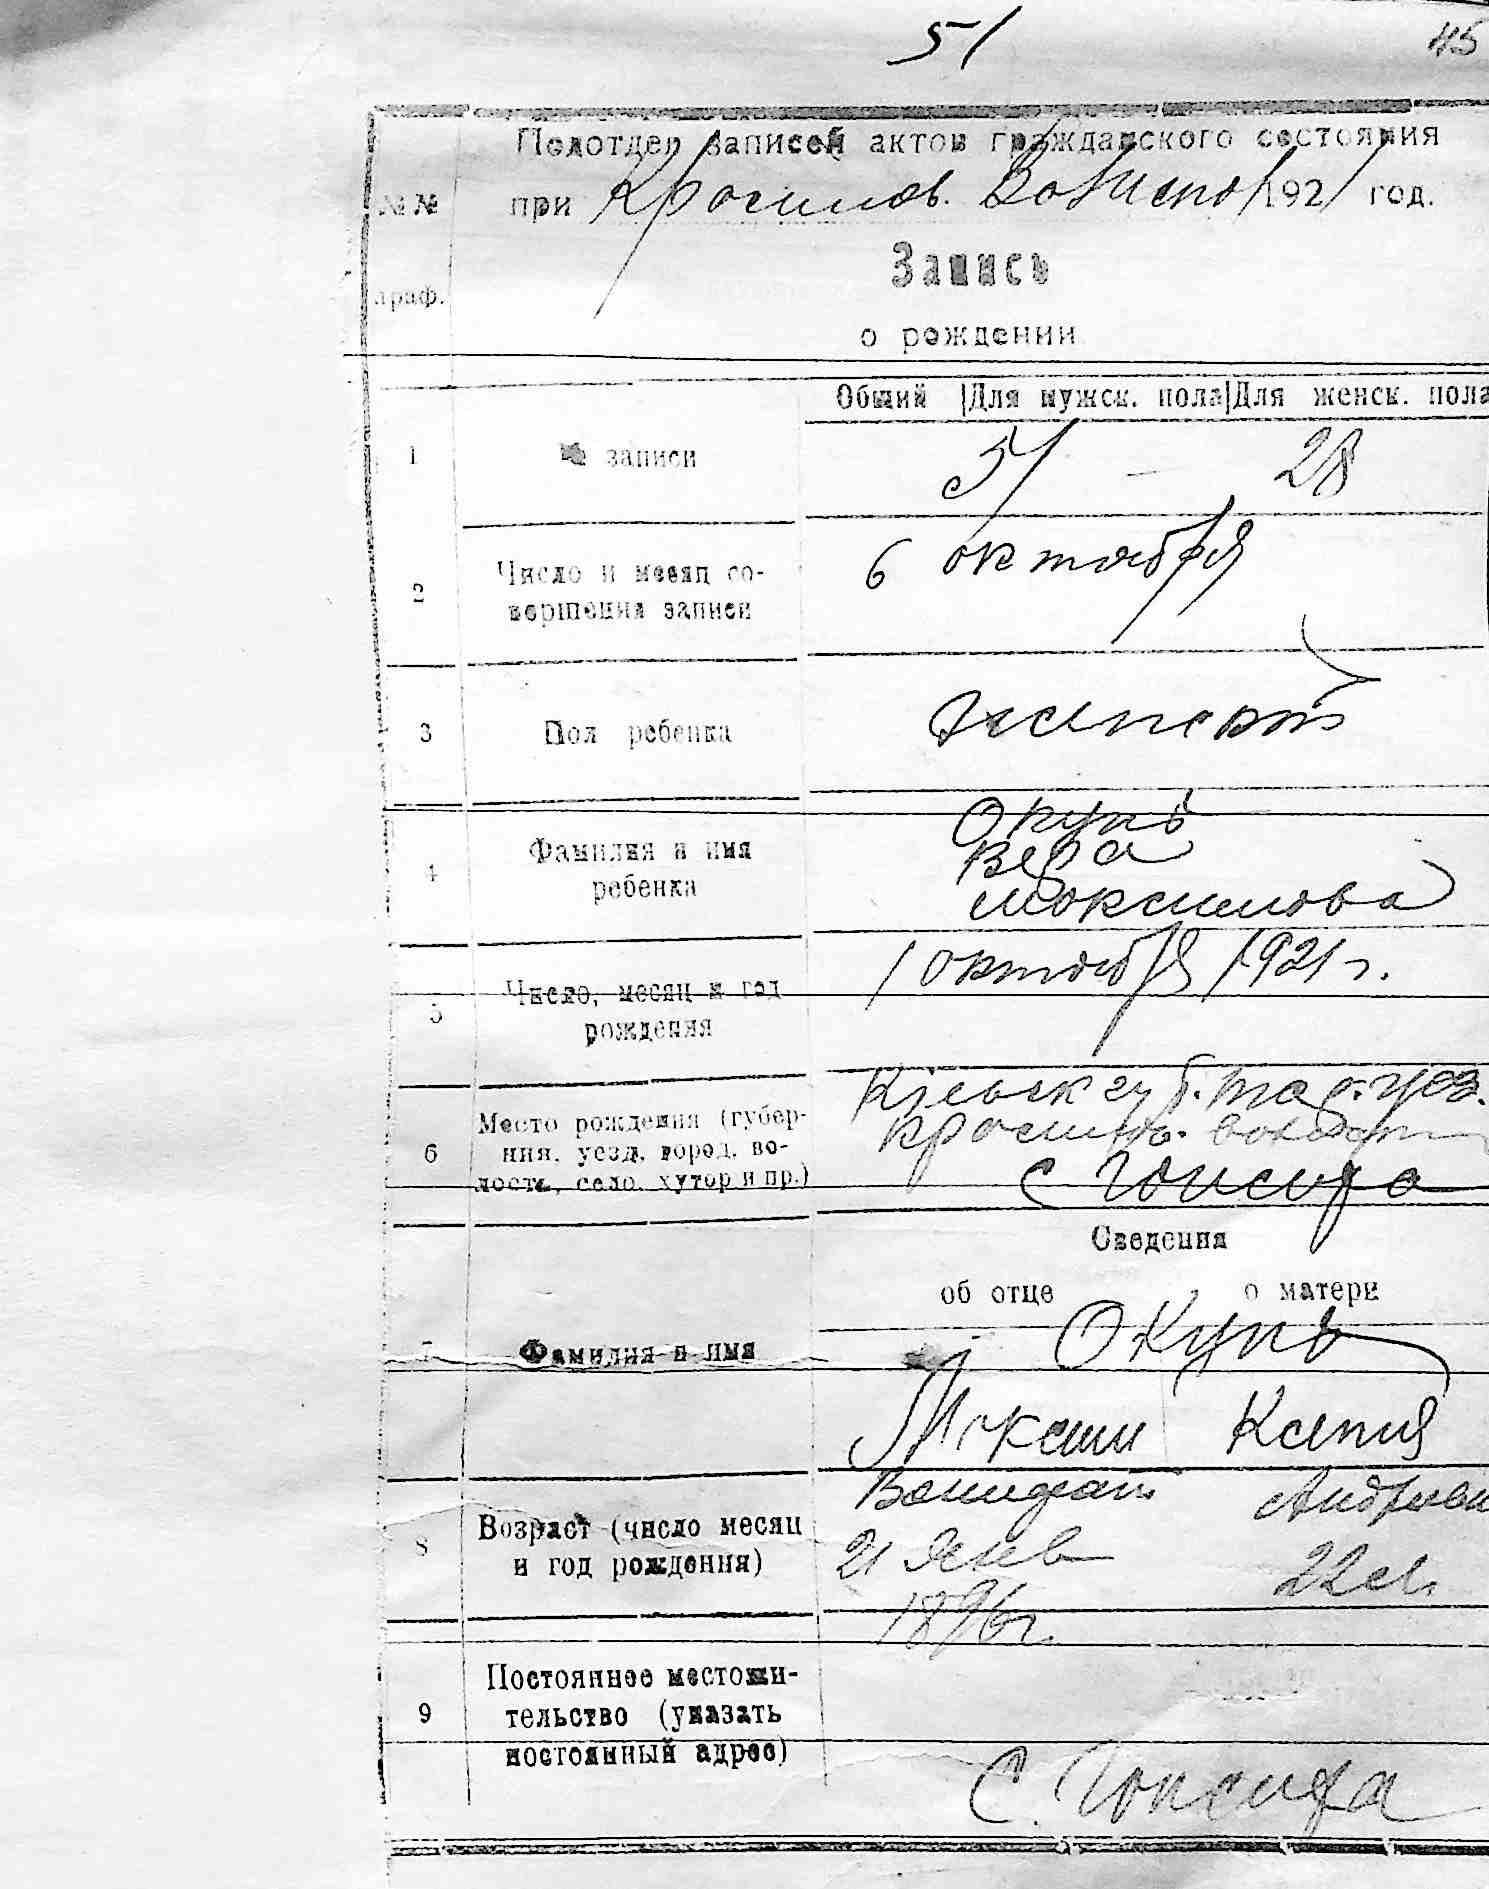 51 45
Подотдел записей актов гражданского состояния
№№ при Красилов. Волиспол 1921 год.
Запись
граф.
о рождении
Общий | Для мужск. пола | Для женск. пола
1 № записи 51 — 28
2 Число и месяц со- 6 октября
вершения записи
3 Пол ребенка женской
Окунь
4 Фамилия и имя Вера
ребенка Максимова
1 октября 1921 г.
5 Число, месяц и год
рождения
Киевск губ. Тар. уез.
6 Место рождения (губер- Красилов. волости
ния, уезд, город, во-
лость, село, хутор и пр.) с
Сведения
об отце о матери
7 Фамилия и имя Окунь
Максим Ксения
8 Возраст (число месяц 21 Янв 22 л.
и год рождения)
1896 г.
9 Постоянное местожи-
тельство (указать
постоянный адрес)
с.